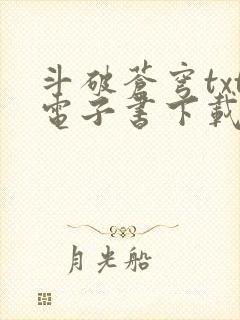 斗破蒼穹txt
電子書下載
月光船